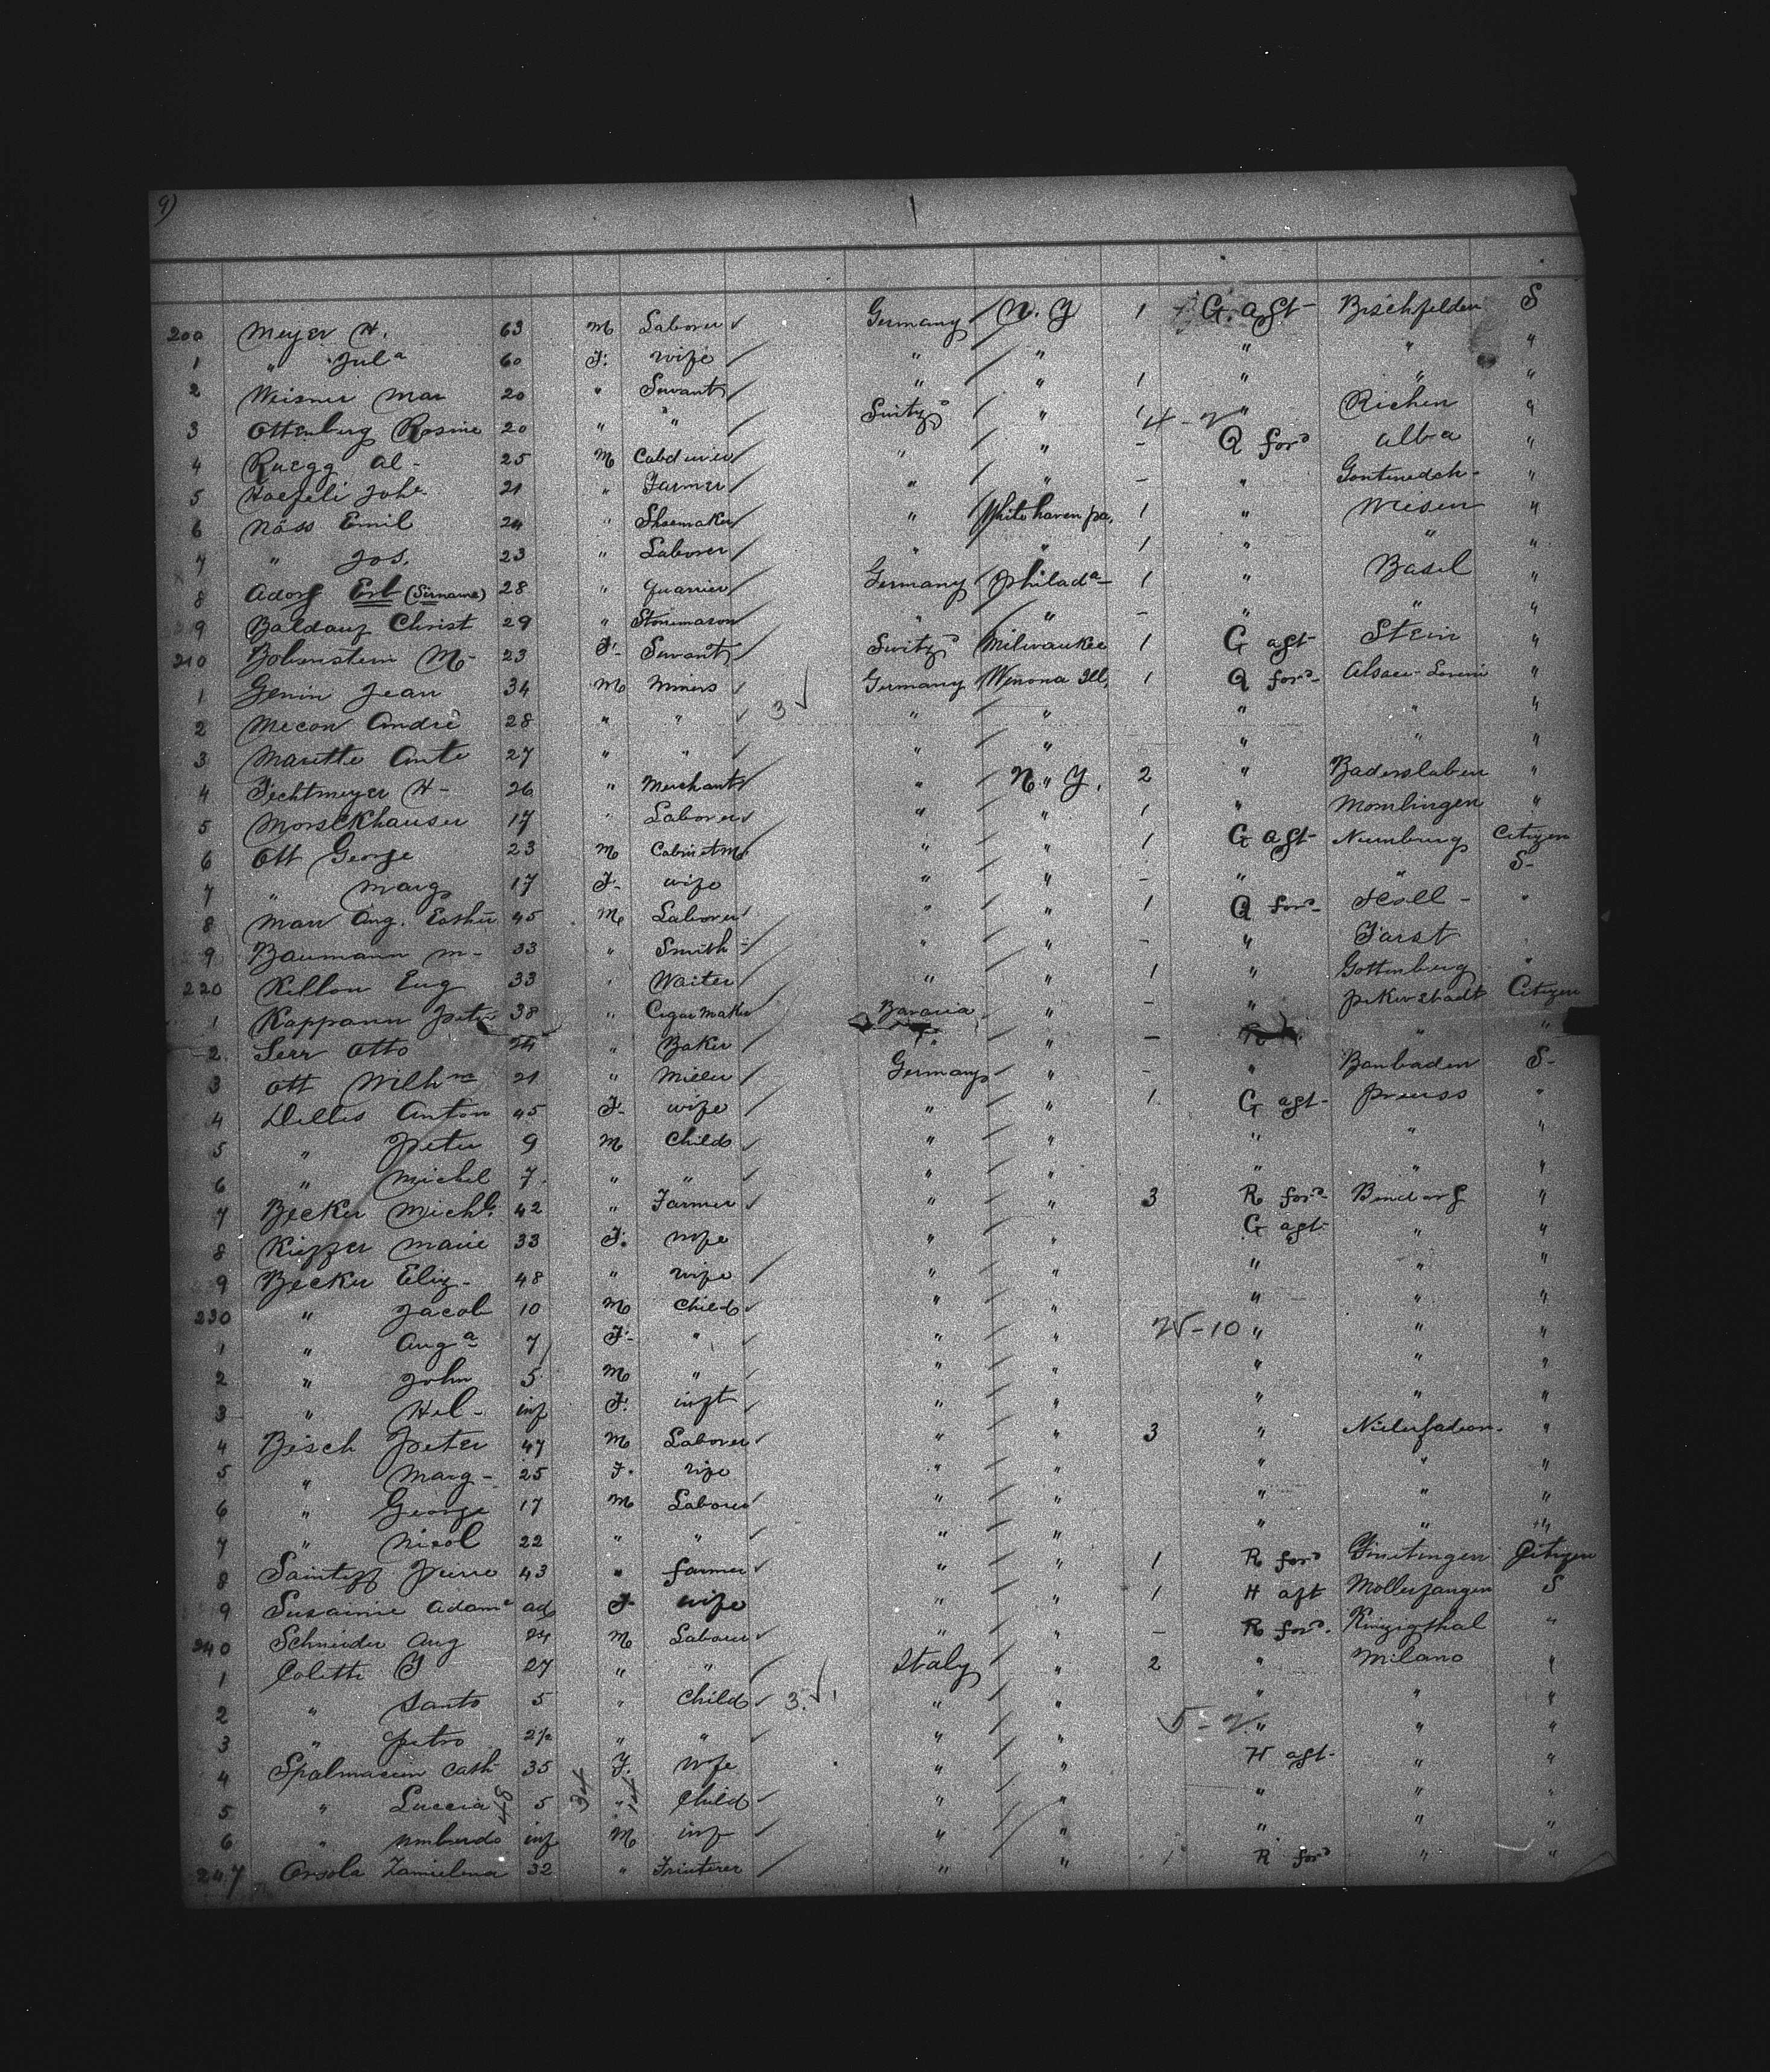 9)
200 Meyer H. 63 M Laborer Germany N. Y 1 G. aft Bischfelden S
1 " Jul a 60 F. wife " " " " "
2 Meisner Mar 20 " Servant " " 1 " " "
3 Ottenburg Rosine 20 " " Switzd " 1 " Richen "
4 - 2
4 Ruegg Al - 25 M " " - Q ford Alba "
5 Haefeli Joh 21 " Farmer " " - " "
6 Näss Emil 24 " Shoemaker " White haven pa, 1 " Weisen "
7 " Jos. 23 " Laborer " " 1 " " "
8 Adorf Erb (Sirname) 28 " quarrier Germany Philada 1 " Basel "
9 Baldauf Christ 29 " Stonemason " " - " " "
210 Bobenstein M - 23 F - Servant Switzd Milwaukee 1 G aft Stein "
1 Genin Jean 34 M Miners Germany Wenona Ill, 1 Q ford Alsace-Lorrain "
2 Mecon André 28 " " 3 " " " " "
3 Marette Ante 27 " " " " " " "
4 Fechtmeyer H - 26 " Merchant " N. Y. 2 " Badersleben "
5 Morsckhauser 17 " Laborer " " 1 " Momlingen "
6 Ott George 23 M Cabinetm " " 1 G aft Numburg Citizen
7 " Marg 17 F - wife " " - " " S -
8 Marr Aug. 45 M Laborer " " 1 Q ford Hall - "
9 Baumann M - 33 " Smith " " - " Farst
220 Killon Eug 33 " Waiter " " 1 " Gottenberg "
1 Kappann Peter 38 " Cigar Maker Bavaria " - " Citizen
2. Serr Otto 24 " Baker " " - " "
3 Ott Wilhm 21 " Miller Germany " - " Banbaden S -
4 Dilles Anton 45 F - wife " " 1 G aft - Preuss "
5 " Peter 9 M Child " " " " "
6 " Michel 7 " " " " " " "
7 Becker Michl. 42 " Farmer " " 3 R ford Bendorf "
8 Kieffer Marie 33 F. wife " " G aft " "
9 Becker Eliz - 48 " wife " " " " "
230 " Jacob 10 M Child " " " " "
1 " Aug a 7 F - " " " " " "
2 " John 5 M " " " " " "
3 " Hel - inf F. inft " " " " "
4 Bisch Peter 47 M Laborer " " 3 " "
5 " Marg - 25 F. wife " " " " "
6 " George 17 M Laborer " " " " "
7 " Nicol 22 " " " " " " "
8 Pierre 43 " farmer " " 1 R ford Citizen
9 Susainie Adam ad F wife " " 1 H aft S
240 Schneider Aug 24 M Laborer " " - R ford. Kinzigthal "
1 Coletti G 27 " " Italy " 2 " Milano "
2 " Santo 5 " Child 3 " " " " "
3 " Petro 2½ " " " " 5 - 2 " " "
4 Cath 35 F. wife " " H aft - " "
5 " Luccia 5 " Child " " " " "
6 " Umberdo inf M inf " " " " "
247 Orsola 32 " " " 1 R ford " "
48
34
14